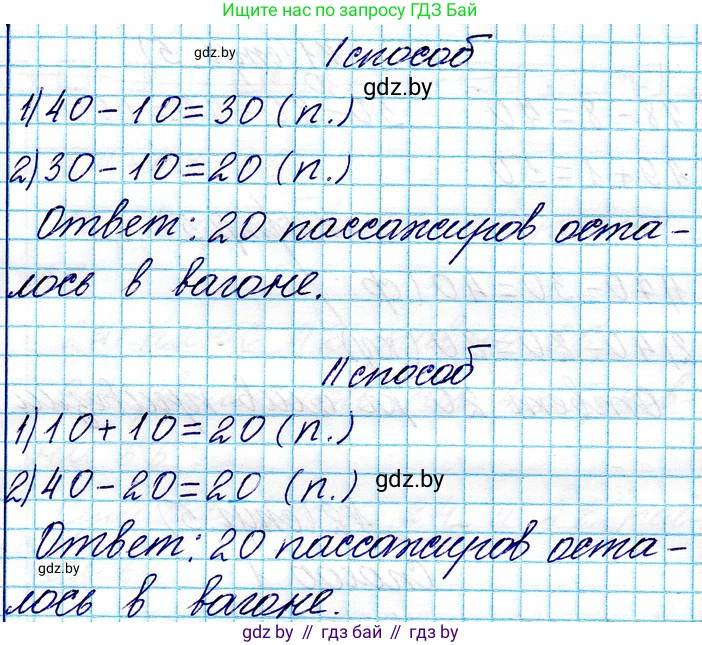 Ищите нас по запросу ГДЗ Бай
gdz.by
I способ
gdz.by
1) 40 - 10 = 30 (п.)
2) 30 - 10 = 20 (п.)
Ответ: 20 пассажиров оста-
лось в вагоне.
II способ
1) 10 + 10 = 20 (п.)
2) 40 - 20 = 20 (п.)
gdz.by
Ответ: 20 пассажиров оста-
gdz.by
лось в вагоне.
gdz.by // гдз бай // gdz.by